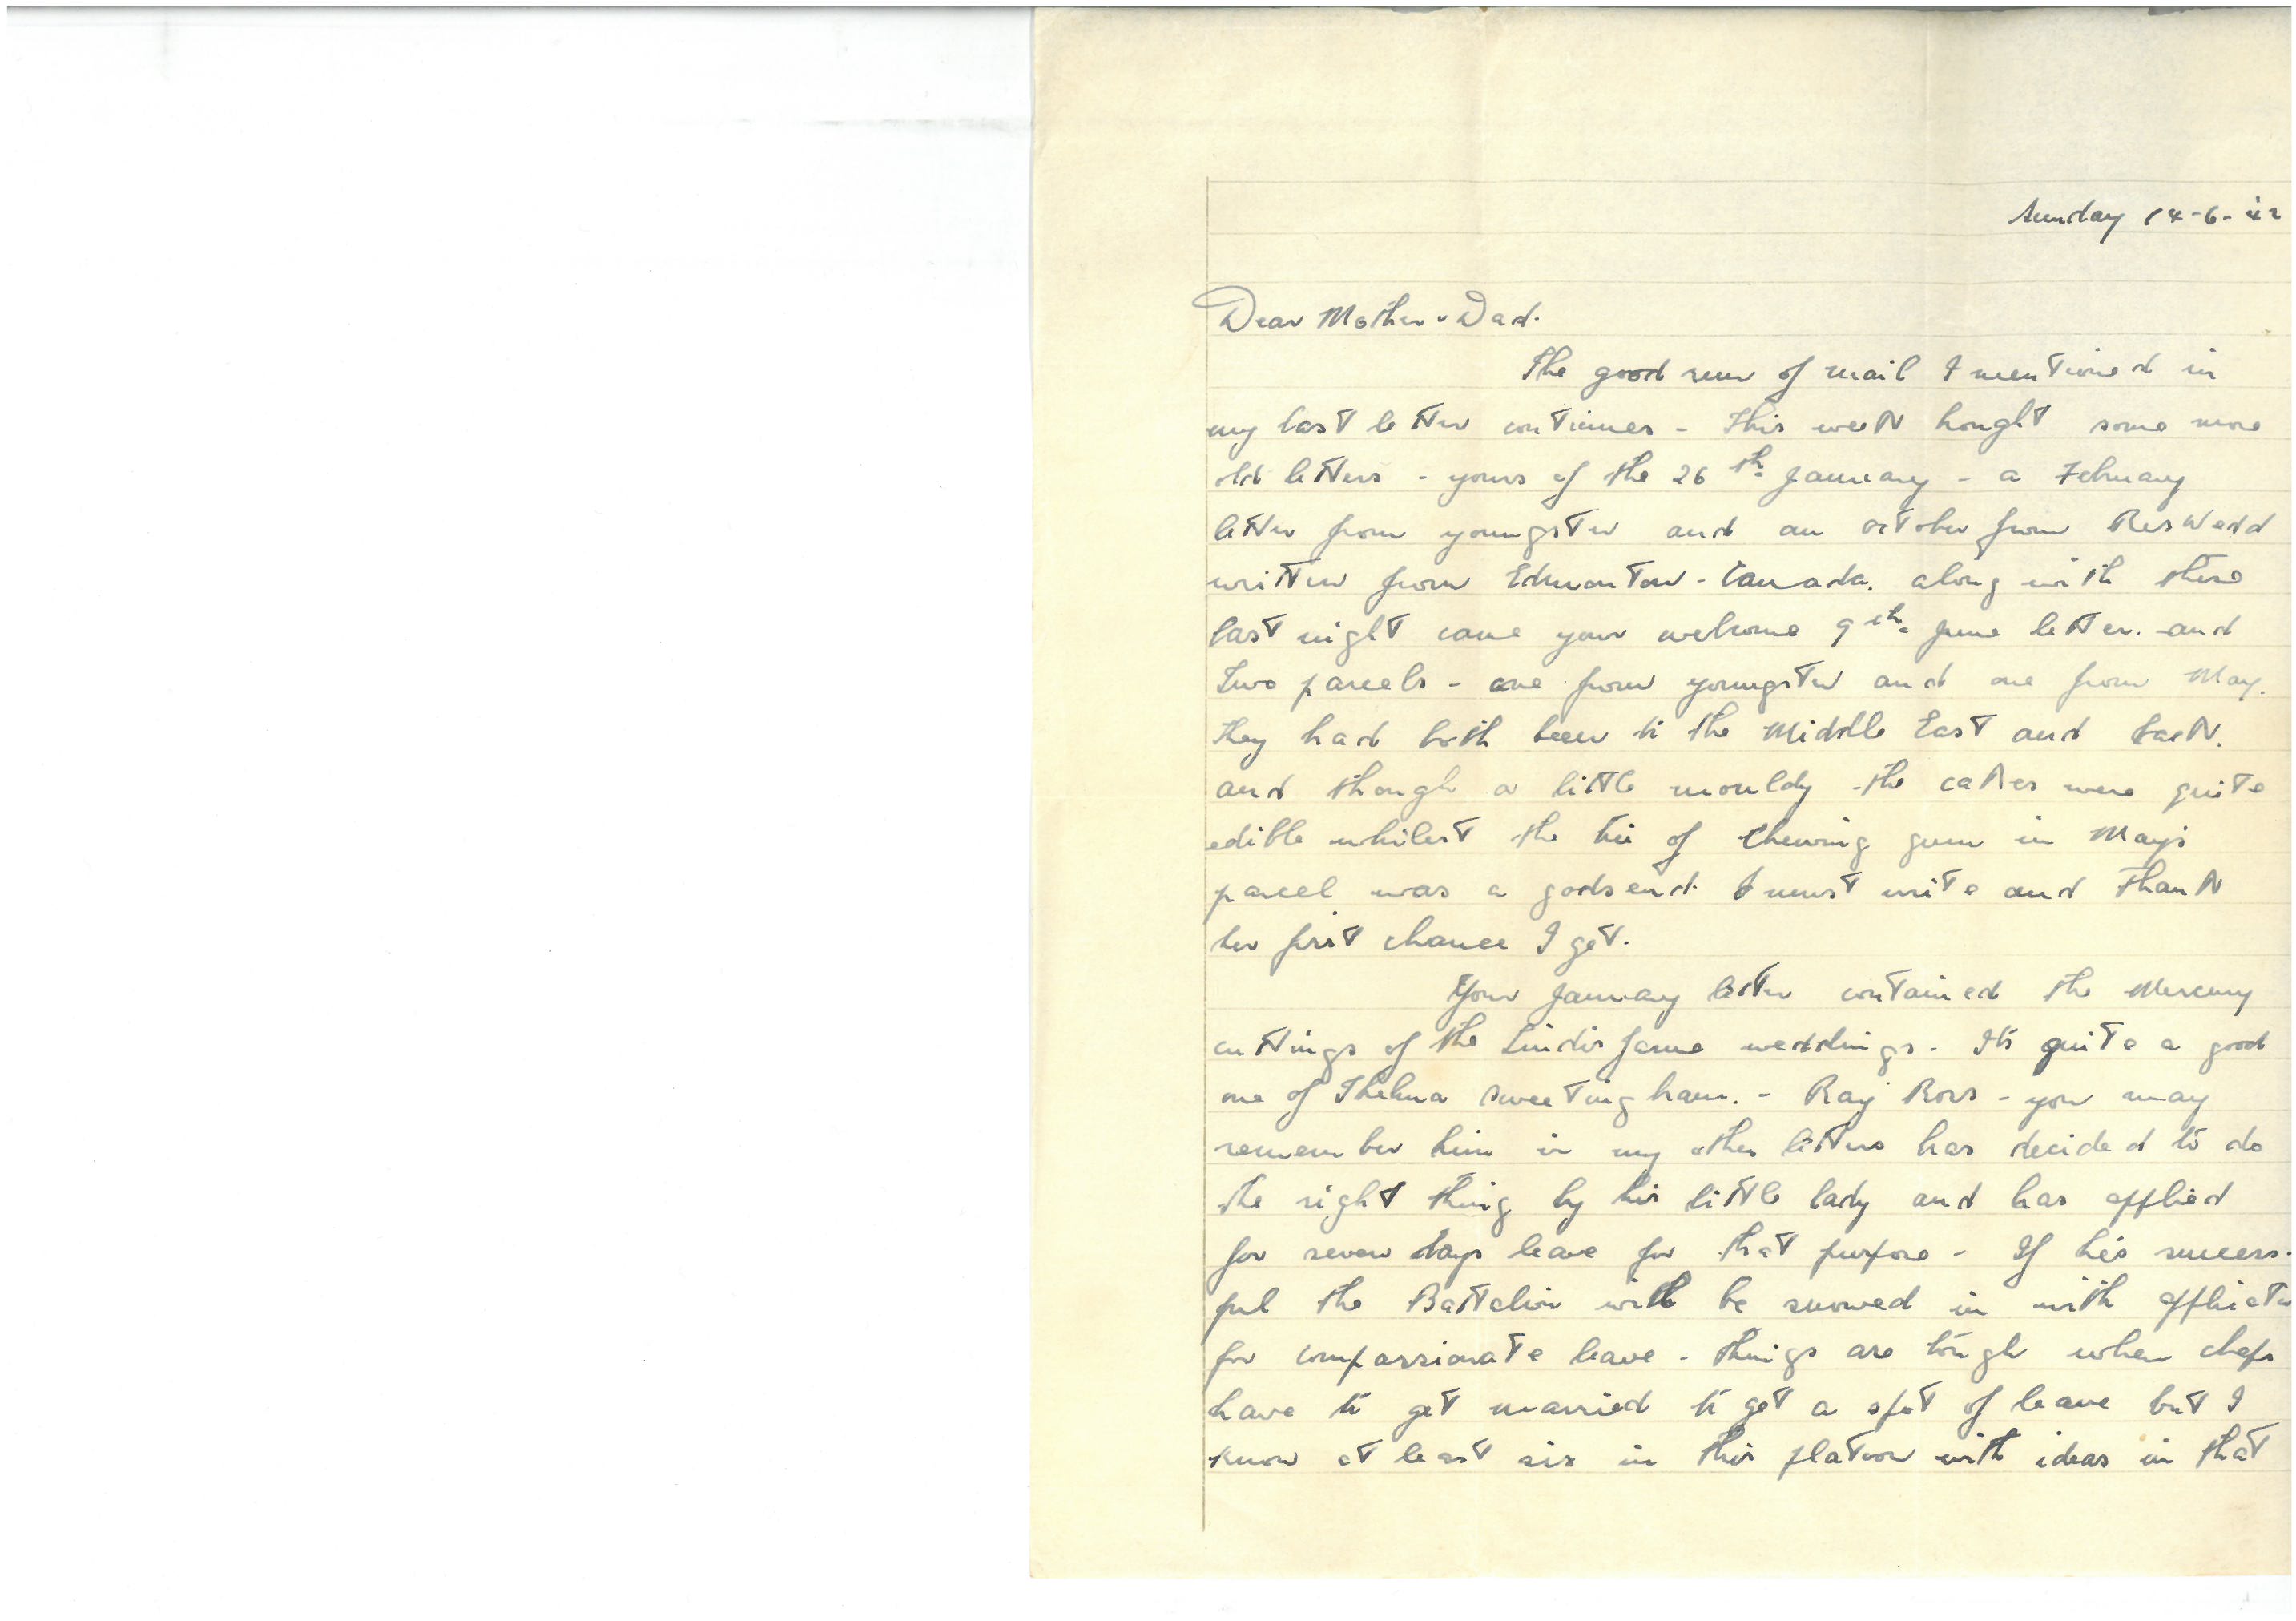 Sunday 14-6-42
Dear Mother & Dad.
The good run of mail I mentioned in
my last letter continues - This week bought some more
old letters - yours of the 26th January - a February
letter from youngster and an October from Res Wedd
written from Edmonton - Canada. along with these
last night came your welcome 9th June letter. and
two parcels - one from youngster and one from May.
They had both been to the Middle East and back.
and though a little mouldy - the cakes were quite
edible whilest the tin of chewing gum in May's
parcel was a godsend. I must write and thank
her first chance I get.
Your January letter contained the Mercury
cuttings of the Lindisfarne weddings. It's quite a good
one of Thelma Sweetingham. - Ray Ross - you may
remember him in my other letters has decided to do
the right thing by his little lady and has applied
for seven days leave for that purpose - If he's success-
ful the Battalion will be snowed in with applicatn
for compassionate leave - things are tough when chaps
have to get married to get a spot of leave but I
know at least six in this platoon with ideas in that